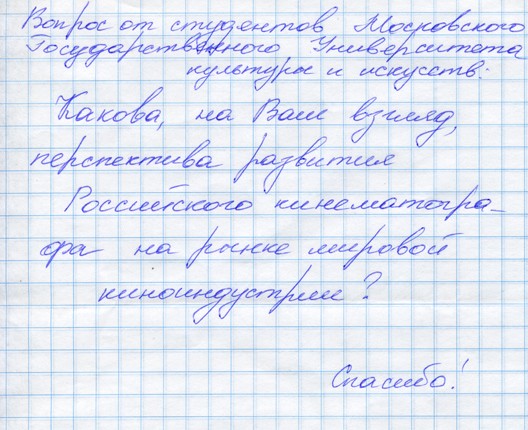 Вопрос от студентов Московского
Государственного Университета
культуры и искусств:
Какова, на Ваш взгляд,
перспектива развития
Российского кинематогра-
фа на рынке мировой
киноиндустрии?
Спасибо!